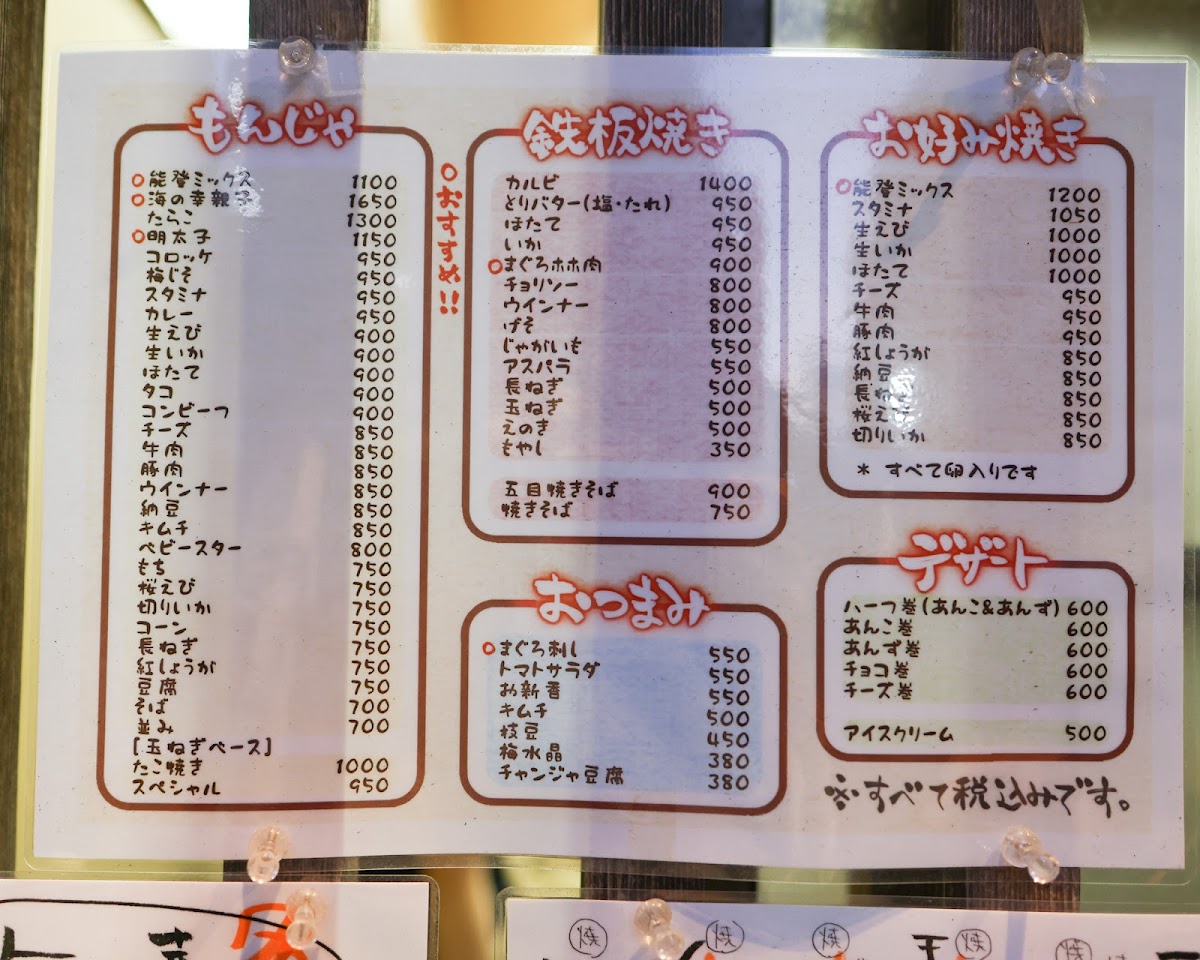 もんじゃ
○能登ミックス 1100
○海の幸親子 1650
たらこ 1300
○明太子 1150
コロッケ 950
梅じそ 950
スタミナ 950
カレー 950
生えび 900
生いか 900
ほたて 900
タコ 900
コンビーフ 900
チーズ 850
牛肉 850
豚肉 850
ウインナー 850
納豆 850
キムチ 850
ベビースター 800
もち 750
桜えび 750
切りいか 750
コーン 750
長ねぎ 750
紅しょうが 750
豆腐 750
そば 700
並み 700
[玉ねぎベース]
たこ焼き 1000
スペシャル 950
○おすすめ!!
鉄板焼き
カルビ 1400
とりバター(塩・たれ) 950
ほたて 950
いか 950
○まぐろホホ肉 900
チョリソー 800
ウインナー 800
げそ 800
じゃがいも 550
アスパラ 550
長ねぎ 500
玉ねぎ 500
えのき 500
もやし 350
五目焼きそば 900
焼きそば 750
おつまみ
○まぐろ刺し 550
トマトサラダ 550
お新香 550
キムチ 500
枝豆 450
梅水晶 380
チャンジャ豆腐 380
お好み焼き
○能登ミックス 1200
スタミナ 1050
生えび 1000
生いか 1000
ほたて 1000
チーズ 950
牛肉 950
豚肉 950
紅しょうが 850
納豆 850
長ねぎ 850
桜えび 850
切りいか 850
* すべて卵入りです
デザート
ハーフ巻(あんこ&あんず) 600
あんこ巻 600
あんず巻 600
チョコ巻 600
チーズ巻 600
アイスクリーム 500
※すべて税込みです。
焼 焼 焼 焼 焼